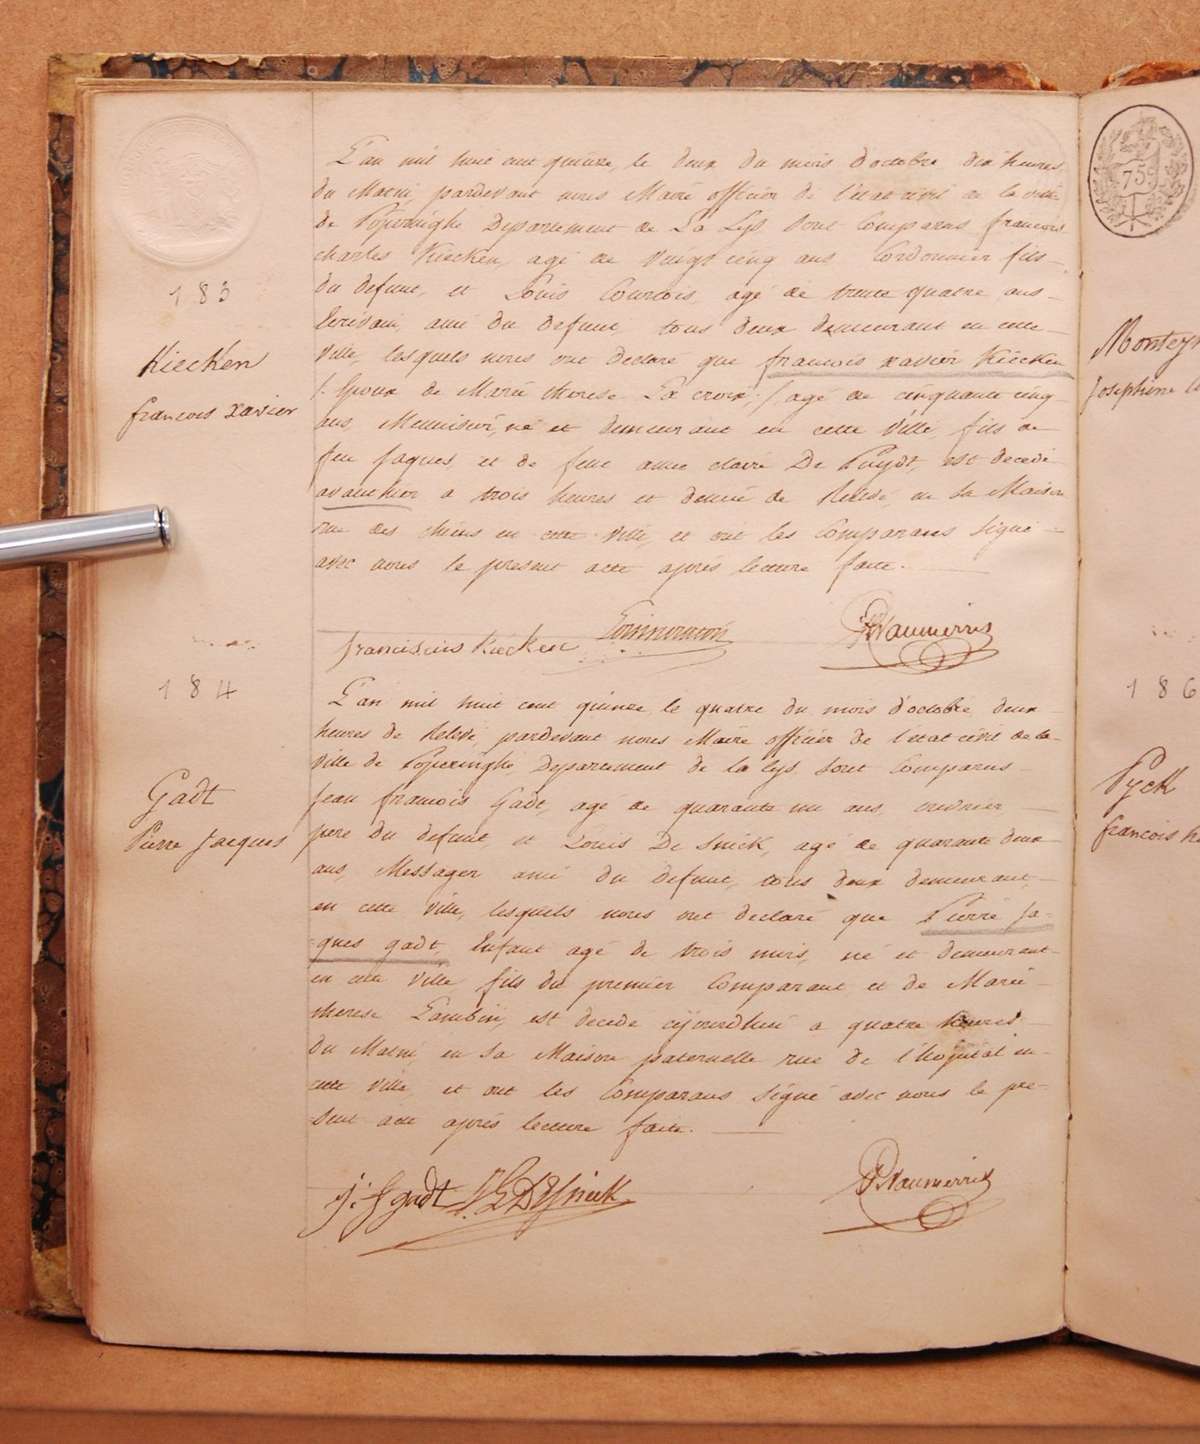 L'an mil huit cent quinze, le deux du mois d'octobre dix heures
du Matin, pardevant nous Maire officier de l'état civil de la ville
de Poperinghe Departement de La Lys sont Comparus francois
charles Kiecken, agé de vingt cinq ans Cordonnier fils
du defunt, et Louis Courtois, agé de trente quatre ans
Ecrivain, ami du defunt, tous deux demeurant en cette
Ville, lesquels nous ont declaré que francois xavier Kiecken
/: Epoux de Marie therese La croix :/ agé de cinquante cinq
ans, Menuisier, né et demeurant en cette Ville, fils de
feu Jaques, et de feue anne claire De Puydt, est decedé
avanthier a trois heures et demie de Relevé, en sa Maison
rue des chiens en cette ville, et ont les Comparans signé
avec nous le present acte après lecture faite.
183
Kiecken
francois xavier
franciscus Kiecken
184
Gadt
Pierre Jacques
L'an mil huit cent quinze, le quatre du mois d'octobre, deux
heures de Relevé, pardevant nous Maire officier de l'état civil de la
Ville de Poperinghe, Departement de la lys, sont Comparus
Jean francois Gadt, agé de quarante un ans,
pere du defunt, et Louis De Snick, agé de quarante deux
ans, Messager ami du defunt, tous deux demeurant
en cette Ville, lesquels nous ont declaré que Pierre Ja-
-ques gadt, Enfant agé de trois mois, né et demeurant
en cette Ville fils du premier Comparant et de Marie
therese Lambin, est decedé cejourdhui a quatre heures
du Matin, en sa Maison paternelle rue de l'hopital en
cette Ville, et ont les Comparans signé avec nous le pre-
sent acte après lecture faite.
j: f gadt L DeSnick
759
186
Pyck
francois